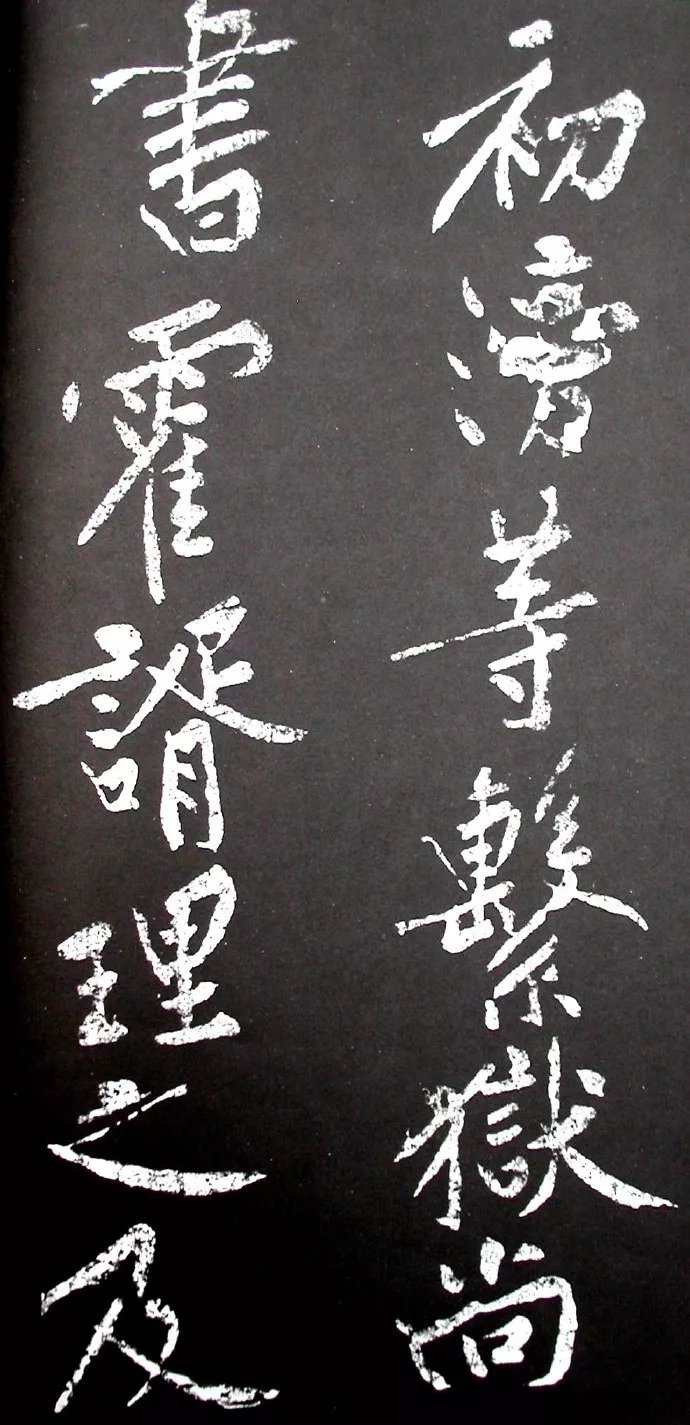 初滂等繫獄尚
書霍諝理之及